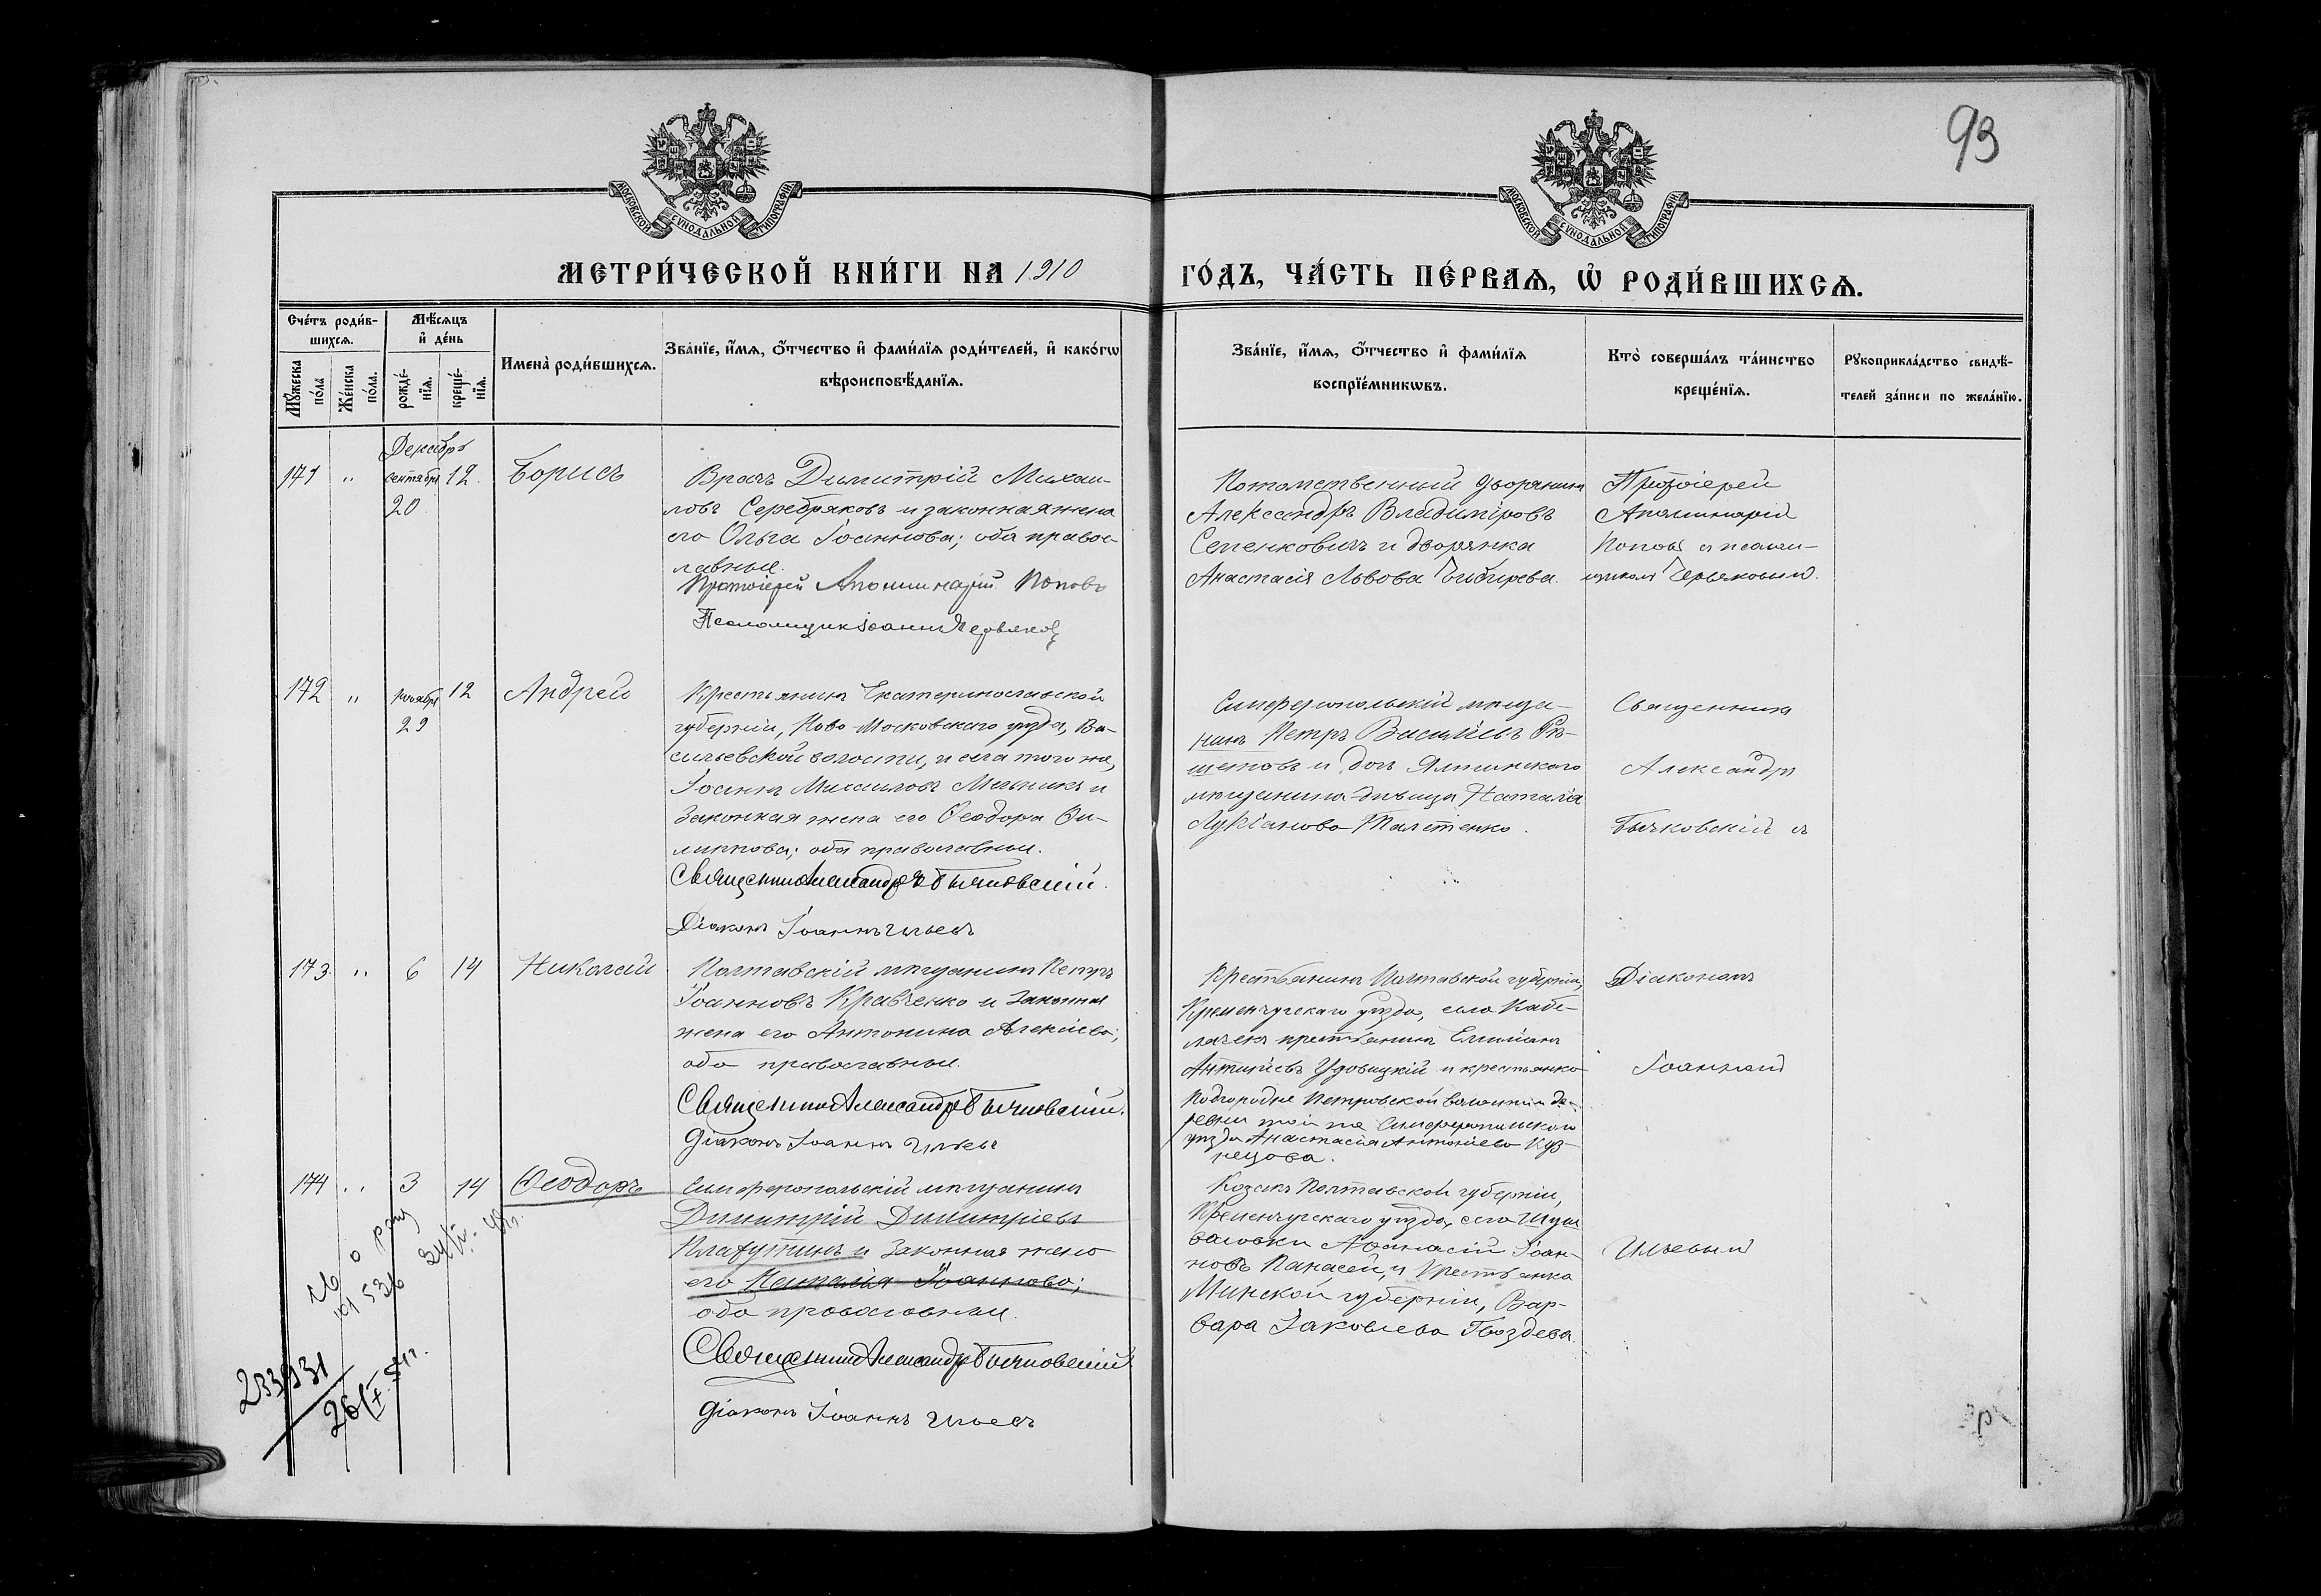 93
МОСКОВСКОЙ СѴНОДАЛЬНОЙ ТИПОГРАФІИ
МОСКОВСКОЙ СѴНОДАЛЬНОЙ ТИПОГРАФІИ
МЕТРИ́ЧЕСКОЙ КНИ́ГИ НА 1910 ГО́ДЪ, ЧА́СТЬ ПЕ́РВАѦ, Ѡ҆ РОДИ́ВШИХСѦ.
Сче́тъ роди́в-
шихсѧ.
Мꙋ́жеска по́ла
Же́нска по́ла.
Мѣ́сѧцъ
и҆ де́нь
рожде́-
нїѧ.
креще́-
нїѧ.
Имена̀ роди́вшихсѧ.
Зва́нїе, и҆́мѧ, ѻ҆́тчество и҆ фами́лїѧ роди́телей, и҆ како́гѡ
вѣроисповѣ́данїѧ.
Зва́нїе, и҆́мѧ, ѻ҆́тчество и҆ фами́лїѧ
воспрїе́мникѡвъ.
Кто̀ соверша́лъ та́инство
креще́нїѧ.
Рꙋкоприкла́дство свидѣ́-
телей за́писи по жела́нїю.
Декабрь
171 " сентября 12. Борисъ
20
Врачъ Димитрій Михаи-
ловъ Серебряковъ и законная жена
его Ольга Іоаннова; оба правос-
лавные.
Протоіерей Аполлинарій Поповъ
Псаломщик Іоаннъ Червяковъ
Потомственный дворянинъ
Александръ Владиміровъ
Семенковичъ и дворянка
Анастасія Львова Чибирева.
Протоіерей
Аполинарій
Поповъ съ псалом-
щикомъ Червяковым.
172 " ноября 12 Андрей
29
Крестьянинъ Екатеринославской
губерніи, Ново-Московскаго уѣзда, Ва-
сильевской волости, и села того же,
Іоаннъ Михаиловъ Мельникъ и
законная жена его Ѳеодора Фи-
липпова; оба православные.
Священникъ Александръ Бычковскій.
Діаконъ Іоаннъ Ильевъ
Симферопольскій мѣща-
нинъ Петръ Васильевъ Рѣ-
щетовъ и дочь Ялтинскаго
мѣщанина дѣвица Наталія
Лукіанова
Священникъ
Александръ
Бычковскій съ
173. " 6 14 Николай
Полтавскій мѣщанинъ Петръ
Іоанновъ Кравченко и законная
жена его Антонина Алексіева;
оба православные.
Священникъ Александръ Бычковскій.
Діаконъ Іоаннъ Ильевъ
Крестьянинъ Полтавской губерніи,
Кременчугскаго уѣзда, села
крестьянинъ Емиліанъ
Антипіевъ Удовицкій и крестьянка
Подгородне Петровской волости де-
ревни той же Симферопольскаго
уѣзда Анастасія Антоніева Куз-
нецова.
Діакономъ
Іоанномъ
174 " 3 14 Ѳеодоръ
Симферопольскій мѣщанинъ
Димитрій Димитріевъ
и законная жена
его Наталія Іоаннова;
оба православные.
Священникъ Александръ Бычковскій
Діаконъ Іоаннъ Ильевъ
Козакъ Полтавской губерніи,
Кременчугскаго уѣзда, села
Аѳанасій Іоан-
новъ Панасей, и крестьянка
Минской губерніи, Вар-
вара Іаковлева Гвоздева.
Ильевым
233931